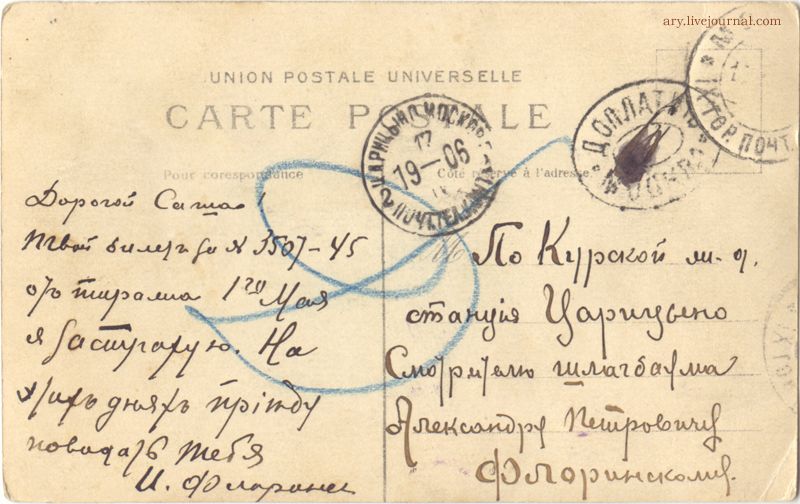 ary.livejournal.com
UNION POSTALE UNIVERSELLE
CARTE POSTALE
Pour corespondance
Côté réservé à l'adresse
ЦАРИЦЫНО МОСКОВ.
17
19-06
ПОЧ.ТЕЛ.
ДОПЛАТИТЬ
МОСКВА
ГОР.ПОЧТ.
Дорогой Саша!
Твой билет за № 3507-45
отъ тиража 1го Мая
я застраховую. На
этихъ дняхъ пріѣду
повидать тебя
И. Флоринс
По Курской ж. д.
станція Царицыно
Смотрителю шлагбаума
Александру Петровичу
Флоринскому.